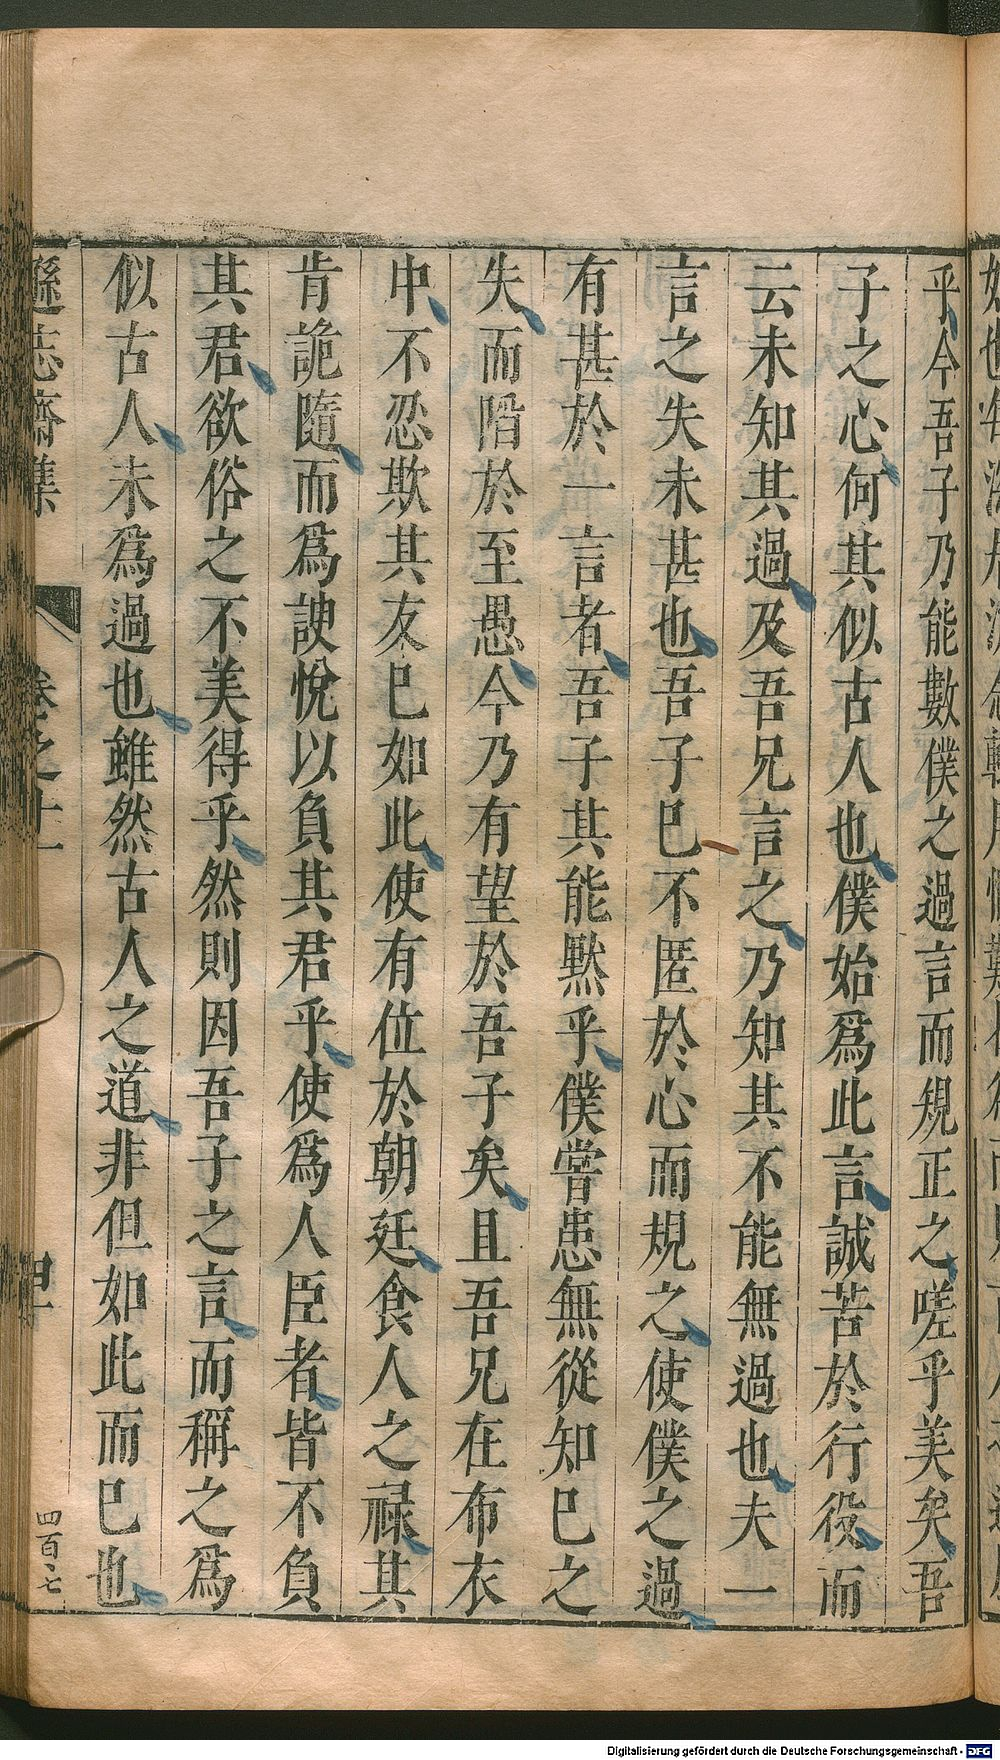 乎今吾子乃能數僕之過言而規正之嗟乎美矣吾
子之心何其似古人也僕始爲此言誠苦於行役而
云未知其過及吾兄言之乃知其不能無過也夫一
言之失未甚也吾子巳不匿於心而規之使僕之過
有甚於一言者吾子其能黙乎僕嘗患無從知巳之
失而陷於至愚今乃有望於吾子矣且吾兄在布衣
中不忍欺其友巳如此使有位於朝廷食人之祿其
肯詭隨而爲諛悅以負其君乎使爲人臣者皆不負
其君欲俗之不美得乎然則因吾子之言而稱之爲
似古人未爲過也雖然古人之道非但如此而巳也
遜志齋集
卷之十一
四百七
Digitalisierung gefördert durch die Deutsche Forschungsgemeinschaft - DFG